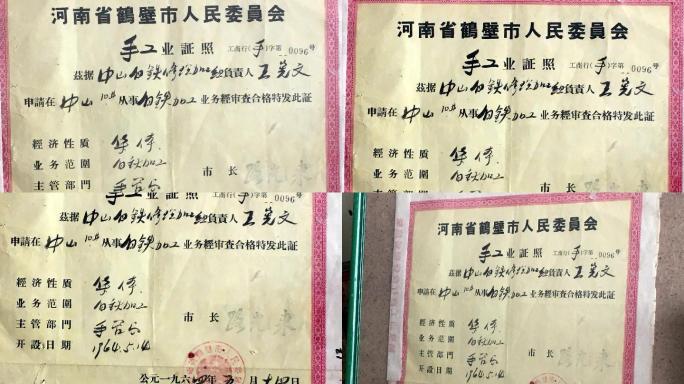 河南省鶴壁市人民委員会
手工业証照 工商行(手)字第0096号
兹据中山白铁修理加工組負責人王宪文
申請在中山10#从事白铁加工业务經审查合格特发此証
經济性质 集体
业务范圍 白秋加工
主管部門 手管局 市长
河南省鶴壁市人民委員会
手工业証照 工商行(手)字第0096号
兹据中山白铁修理加工組負責人王宪文
申請在中山10#从事白铁加工业务經审查合格特发此証
經济性质 集体
业务范圍 白秋加工
主管部門 市长
手工业証照 工商行(手)字第0096号
兹据中山白铁修理加工組負責人王宪文
申請在中山10#从事白铁加工业务經审查合格特发此証
經济性质 集体
业务范圍 白秋加工
主管部門 手管局 市长
开設日期 1964.5.14
公元一九六四年五月十四日
河南省鶴壁市人民委員会
手工业証照 工商行(手)字第0096号
兹据中山白铁修理加工組負責人王宪文
申請在中山10#从事白铁加工业务經审查合格特发此証
經济性质 集体
业务范圍 白秋加工
主管部門 手管局 市长
开設日期 1964.5.14